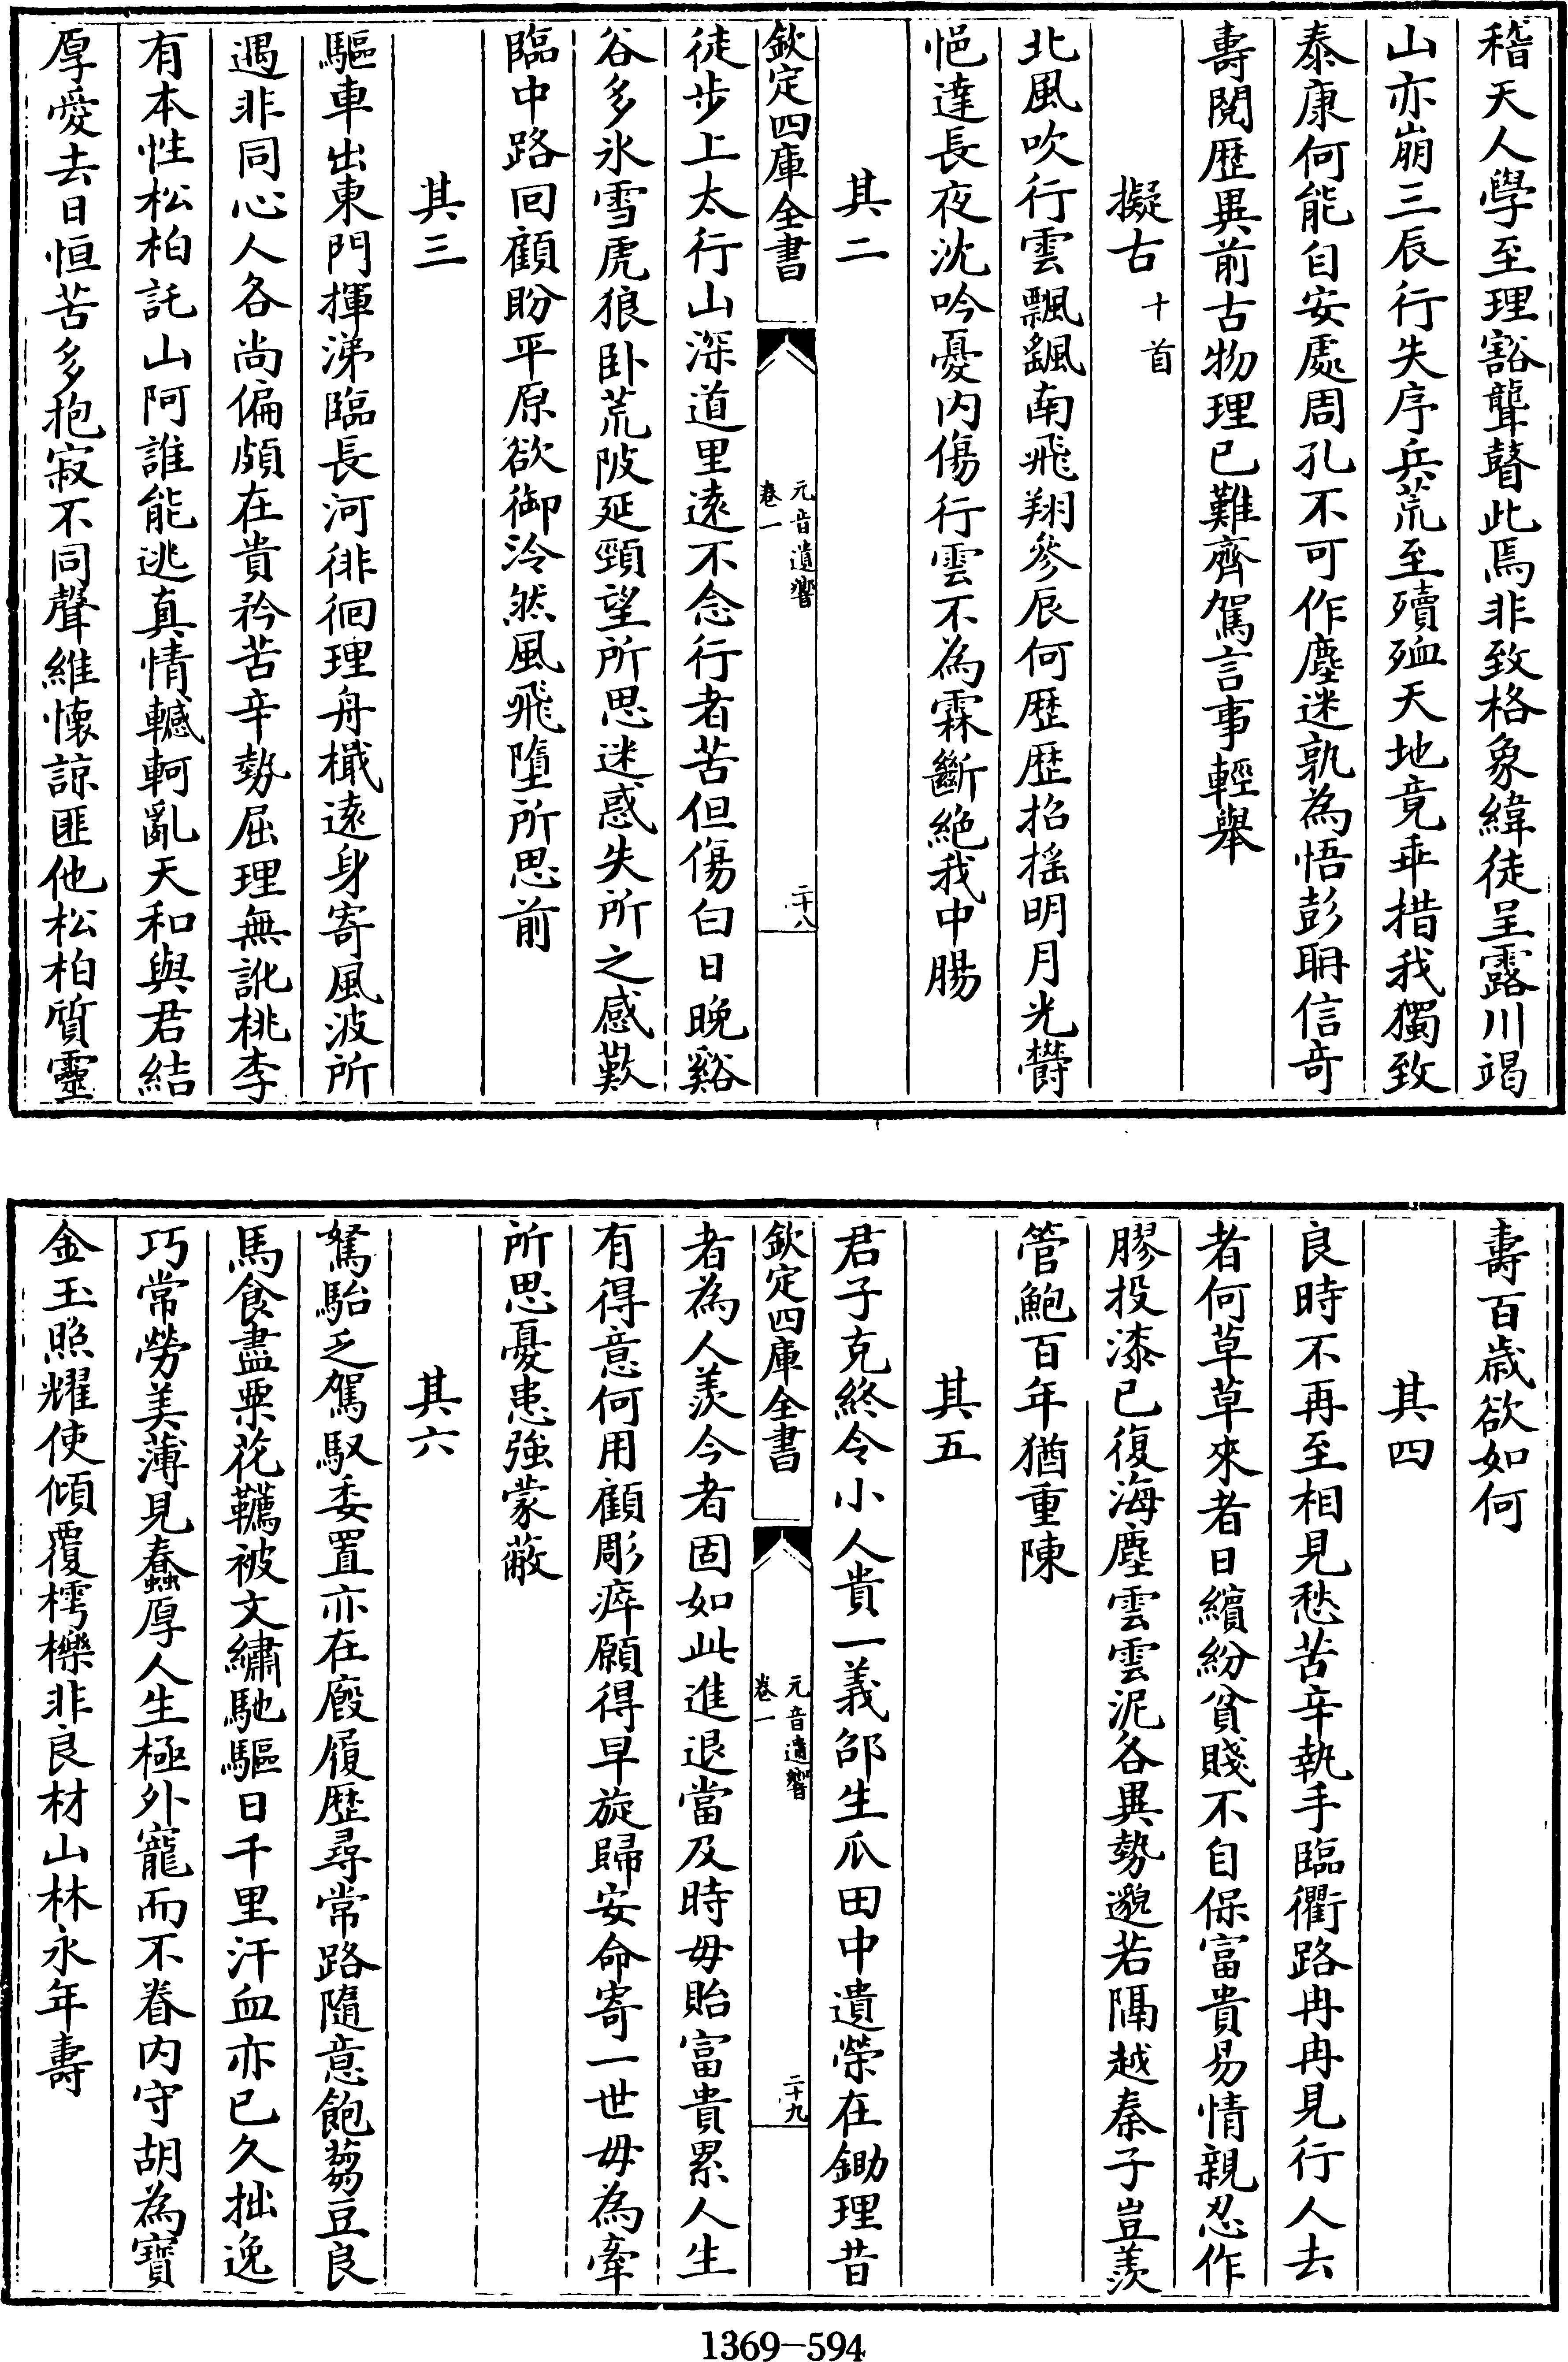 稽天人學至理豁聾瞽此焉非致格象緯徒呈露川竭
山亦崩三辰行失序兵荒至殰殈天地竟乖措我獨致
泰康何能自安處周孔不可作塵迷孰為悟彭聃信奇
壽閱歴異前古物理已難齊駕言事輕舉
擬古十首
北風吹行雲飄颻南飛翔參辰何歴歴招摇明月光欝
悒達長夜沈吟憂内傷行雲不為霖斷絶我中腸
其二
欽定四庫全書
元音遺響
卷一
二十八
徒步上太行山深道里遠不念行者苦但傷白日晚谿
谷多氷雪虎狼卧荒陂延頸望所思迷惑失所之感歎
臨中路回顧盼平原欲御泠然風飛墮所思前
其三
驅車出東門揮涕臨長河徘徊理舟檝遠身寄風波所
遇非同心人各尚偏頗在貴矜苦辛勢屈理無訛桃李
有本性松柏託山阿誰能逃真情轗軻亂天和與君結
厚愛去日恒苦多抱寂不同聲維懷諒匪他松柏質靈
壽百歳欲如何
其四
良時不再至相見愁苦辛執手臨衢路冉冉見行人去
者何草草來者日繽紛貧賤不自保富貴易情親忍作
膠投漆已復海塵雲雲泥各異勢邈若隔越秦子豈羨
管鮑百年猶重陳
其五
君子克終令小人貴一義邵生瓜田中遺榮在鋤理昔
欽定四庫全書
元音遺響
卷一
二十九
者為人羨今者固如此進退當及時毋貽富貴累人生
有得意何用顧彫瘁願得早旋歸安命寄一世毋為牽
所思憂患強蒙蔽
其六
駑駘乏駕馭委置亦在廐履歴尋常路隨意飽芻豆良
馬食盡粟花韉被文繡馳驅日千里汗血亦已久拙逸
巧常勞美薄見蠢厚人生極外寵而不眷内守胡為寶
金玉照耀使傾覆樗櫟非良材山林永年壽
1369-594